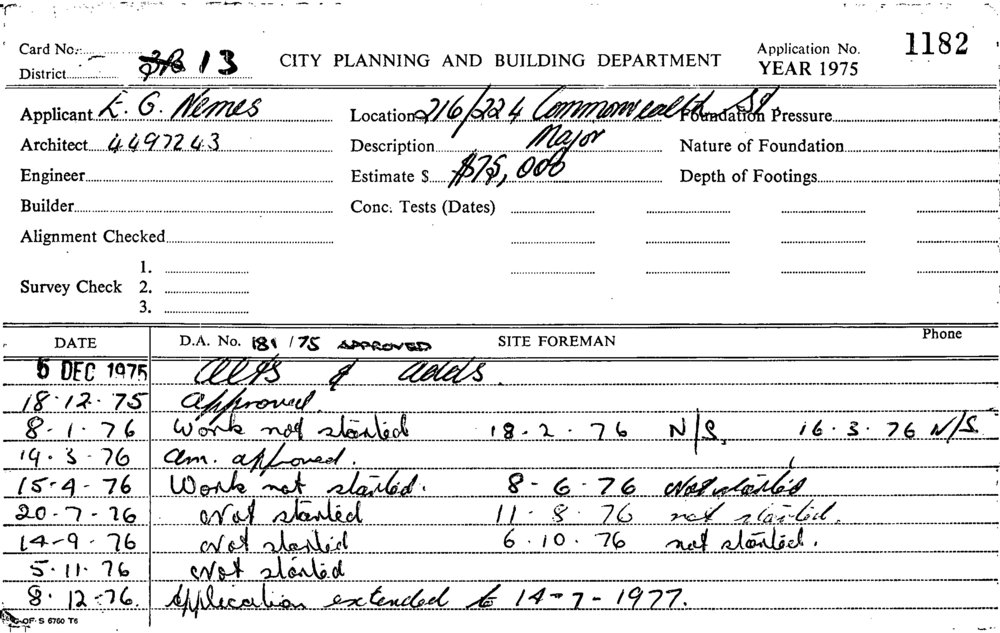 Card No. CITY PLANNING AND BUILDING DEPARTMENT Application No. 1182
District 13 YEAR 1975
Applicant E. G. Nemes Location 216/224 Commonwealth St. Foundation Pressure
Architect 4497243 Description Major Nature of Foundation
Engineer Estimate $ $75,000 Depth of Footings
Builder Conc. Tests (Dates)
Alignment Checked
1.
Survey Check 2.
3.
DATE D.A. No. 181/75 APPROVED SITE FOREMAN Phone
5 DEC 1975 Alts & adds.
18.12.75 approved.
8-1-76 Work not started 18-2-76 N/S. 16.3.76 N/S.
19.3.76 am. approved.
15-4-76 Work not started. 8-6-76 Not started
20-7-76 Not started 11-8-76 not started.
14-9-76 Not started 6.10.76 not started.
5.11.76 Not started
8.12.76. Application extended to 14-7-1977.
S 6760 T6